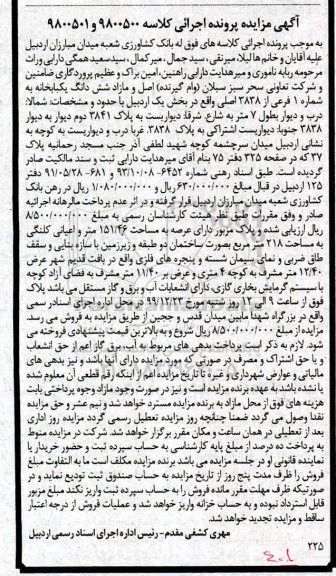 آگهی مزایده پرونده اجرائی کلاسه ۹۸۰۰۵۰۰ و ۹۸۰۰۵۰۱
به موجب پرونده اجرائی کلاسه های فوق له بانک کشاورزی شعبه میدان مبارزان اردبیل
علیه آقایان و خانم ها لیلا، میرتقی، سید جمال، میرکمال، سیدسعید همگی دارابی وراث
مرحومه ربابه ناموری و میرهدایت دارابی راهنین، امین براک و عظیم پروردگاری ضامنین
و شرکت تعاونی سحر سبز سبلان (وام گیرنده) اصل و مازاد شش دانگ یکبابخانه به
شماره ۱ فرعی از ۳۸۳۸ اصلی واقع در بخش یک اردبیل با حدود و مشخصات: شمالا:
درب و دیوار بطول ۷ متر به شارع. شرقا: دیواریست به پلاک ۳۸۴۱ دوم دیوار به دیوار
۳۸۳۸ جنوبا: دیواریست اشتراکی به پلاک ۳۸۳۸. غربا درب و دیواریست به کوچه به
نشانی اردبیل میدان سرچشمه کوچه شهید لطفی آذر جنب مسجد رحمانیه پلاک
۳۷ که در صفحه ۳۲۵ دفتر ۷۵ بنام آقای میرهدایت دارابی ثبت و سند مالکیت صادر
گردیده است. طبق اسناد رهنی شماره ۶۴۵۲- ۹۳/۱۰/۰۸ و ۶۸۱- ۹۱/۰۵/۲۸ دفتر
۱۲۵ اردبیل در قبال مبالغ ۶۳۰/۰۰۰/۰۰۰ ریال و ۱/۰۸۰/۰۰۰/۰۰۰ ریال در رهن بانک
کشاورزی شعبه میدان مبارزان اردبیل قرار گرفته و در اثر عدم پرداخت مالرهانه اجرائیه
صادر و وفق مقررات طبق نظر هیئت کارشناسان رسمی به مبلغ ۸/۵۰۰/۰۰۰/۰۰۰
ریال ارزیابی شده و پلاک مزبور دارای عرصه به مساحت ۱۵۱/۴۶ متر و اعیانی کلنگی
به مساحت ۲۱۸ متر مربع بصورت ساختمان دو طبقه و زیرزمین با سازه بنایی و سقف
طاق ضربی و نمای سیمان شسته و پنجره های فلزی واقع در بافت قدیم شهر عرض
۱۲/۴۰ متر مشرف به کوچه ۴ متری و عرض بر ۱۱/۴۰ متر مشرف به فضای آزاد کوچه
با سیستم گرمایش بخاری گازی، دارای انشعابات آب و برق و گاز مستقل می باشد پلاک
فوق از ساعت ۹ الی ۱۲ روز شنبه مورخ ۹۹/۱۲/۲۳ در محل اداره اجرای اسناد رسمی
واقع در بزرگراه شهدا مابین میدان قدس و ججین از طریق مزایده به فروش می رسد.
مزایده از مبلغ ۸/۵۰۰/۰۰۰/۰۰۰ ریال شروع و به بالاترین قیمت پیشنهادی فروخته می
شود. لازم به ذکر است پرداخت بدهی های مربوط به آب، برق، گاز اعم از حق انشعاب
و یا حق اشتراک و مصرف در صورتی که مورد مزایده دارای آنها باشد و نیز بدهی های
مالیاتی و عوارض شهرداری و غیره تا تاریخ مزایده اعم از اینکه رقم قطعی آن معلوم شده
یا نشده باشد به عهده برنده مزایده است و نیز در صورت وجود مازاد وجوه پرداختی بابت
هزینه های فوق از محل مازاد به برنده مزایده مسترد خواهد شد و نیم عشر و حق مزایده
نقدا وصول می گردد ضمنا چنانچه روز مزایده تعطیل رسمی گردد مزایده روز اداری
بعد از تعطیلی در همان ساعت و مکان مقرر برگزار خواهد شد. شرکت در مزایده منوط
به پرداخت ده درصد از مبلغ پایه کارشناسی به حساب سپرده ثبت و حضور خریدار یا
نماینده قانونی او در جلسه مزایده می باشد برنده مزایده مکلف است ما به التفاوت مبلغ
فروش را ظرف مدت پنج روز از تاریخ مزایده به حساب صندوق ثبت تودیع نماید و در
صورتیکه ظرف مهلت مقرر مانده فروش را به حساب سپرده ثبت واریز نکند مبلغ مزبور
قابل استرداد نبوده و به حساب خزانه واریز خواهد شد و عملیات فروش از درجه اعتبار
ساقط و مزایده تجدید خواهد شد.
مهری کشفی مقدم- رئیس اداره اجرای اسناد رسمی اردبیل
۲۲۵